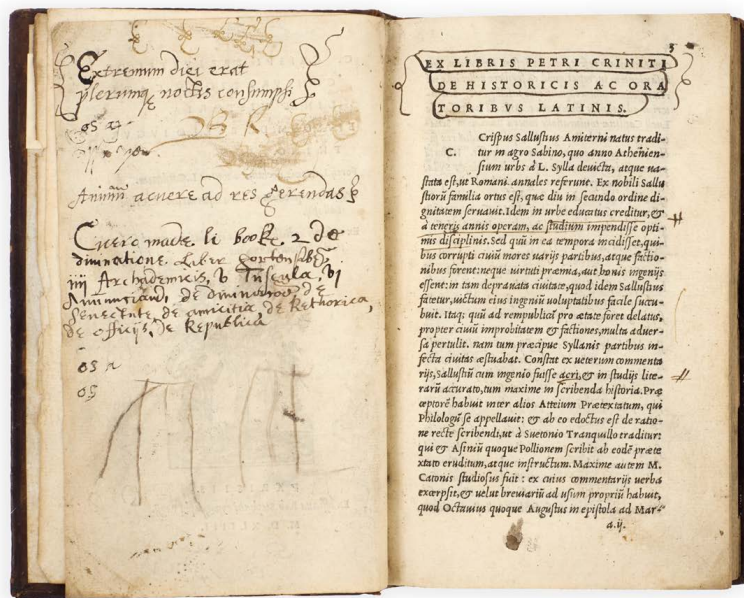 Extremum diei erat
plerumq noctis consumpsi
OB R
Animū acuere ad res gerendas
Cicero made li booke 2 de
divinatione, Liber hortensis
iiij Archademicis, v Tuscula, vi
de divinatione de
Senectute, de amicitia, de Rethorica,
de officijs, de Republica
os
os
5
EX LIBRIS PETRI CRINITI
DE HISTORICIS AC ORA
TORIBVS LATINIS.
Crispus Sallustius Amiterni natus tradi-
C. tur in agro Sabino, quo anno Atheniēn-
sium urbs à L. Sylla deuicta, atque ua-
stata est, ut Romani annales referunt. Ex nobili Sallu
stiorū familia ortus est, quæ diu in secundo ordine di-
gnitatem seruauit. Idem in urbe educatus creditur, &
à teneris annis operam, ac studium impendisse opti-
mis disciplinis. Sed quū in ea tempora incidisset, qui-
bus corrupti ciuiū mores uarijs partibus, atque factio-
nibus forent: neque uirtuti præmia, aut bonis ingenijs
essent: in tam deprauata ciuitate, quod idem Sallustius
fatetur, uictum eius ingeniū uoluptatibus facile succu-
buit. Itaq; quū ad rempublicā pro ætate foret delatus,
propter ciuiū improbitatem & factiones, multa aduer-
sa pertulit. nam tum præcipue Syllanis partibus in-
fecta ciuitas æstuabat. Constat ex ueterum commenta
rijs, Sallustiū cum ingenio fuisse acri, & in studijs lite-
rarū accurato, tum maxime in scribenda historia. Præ
ceptorē habuit inter alios Atteium Prætextatum, qui
Philologū se appellauit: & ab eo edoctus est de ratio-
ne recte scribendi, ut à Suetonio Tranquillo traditur:
qui & Asiniū quoque Pollionem scribit ab eodē præte
xtato eruditum, atque instructum. Maxime autem M.
Catonis studiosus fuit: ex cuius commentarijs uerba
excerpsit, & uelut breuiariū ad usum propriū habuit,
quod Octauius quoque Augustus in epistola ad Mar-
a.ij.